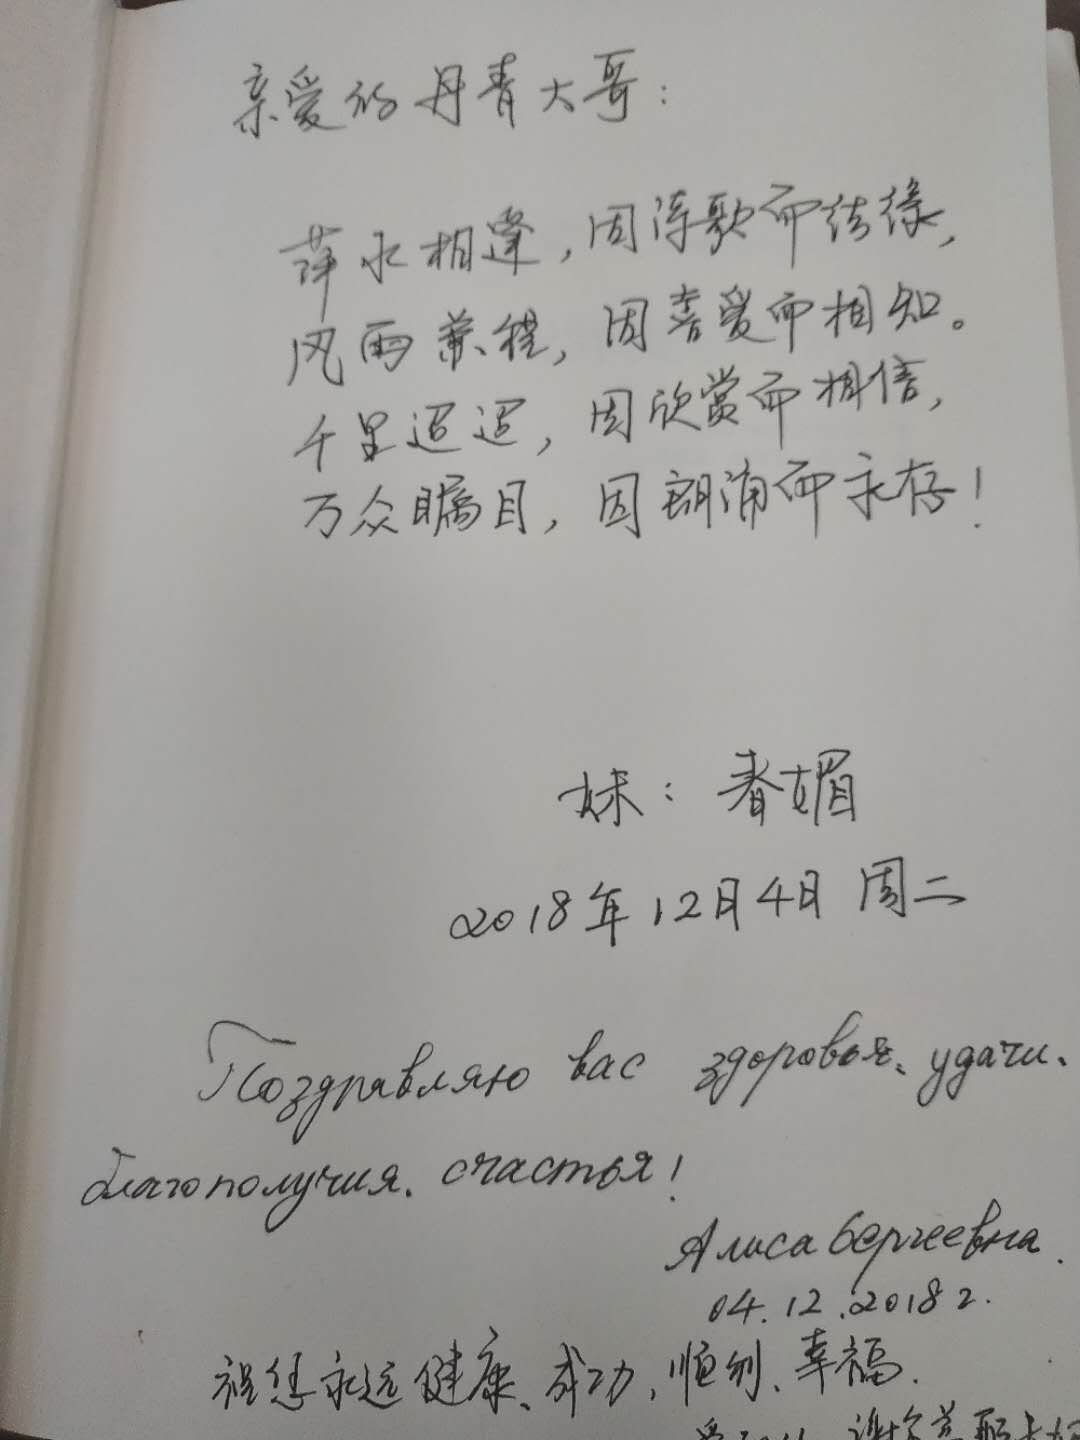 亲爱的丹青大哥：
萍水相逢，因诗歌而结缘，
风雨兼程，因喜爱而相知。
千里迢迢，因欣赏而相信，
万众瞩目，因朗诵而永存！
妹：春媚
2018年12月4日 周二
Поздравляю вас здоровья、удачи、
благополучия、счастья！
Алиса Сергеевна.
04.12.2018 г.
祝您永远健康、成功，顺利、幸福.